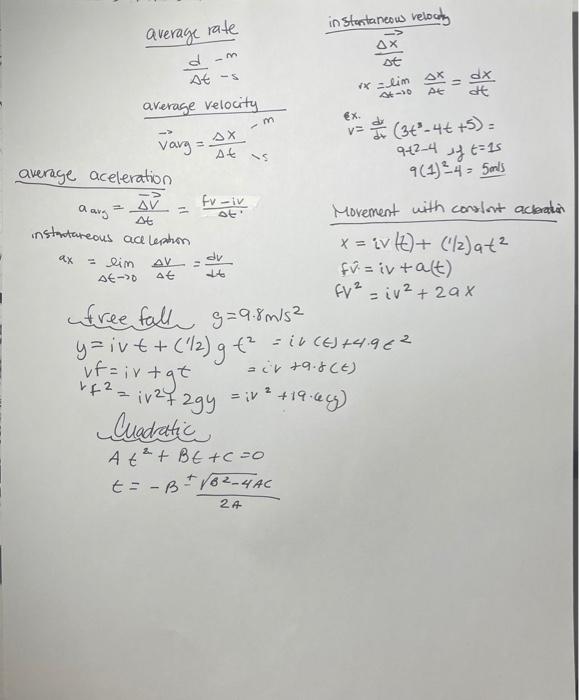 average rate
d - m
Δt - s
average velocity
v avg = Δx - m
Δt - s
average aceleration
a avg = ΔV = fv - iv
Δt Δt
instantaneous aceleration
ax = lim ΔV = dv
Δt→0 Δt dt
instantaneous velocity
Δx
Δt
vx = lim Δx = dx
Δt→0 Δt dt
ex.
v = dv/dt (3t³ - 4t + 5) =
9t2 - 4 if t = 1s
9(1)² - 4 = 5m/s
Movement with constant aceleration
x = iv(t) + (1/2)at²
fv = iv + a(t)
fv² = iv² + 2ax
free fall g = 9.8 m/s²
y = ivt + (1/2)gt² = iv(t) + 4.9t²
vf = iv + gt = iv + 9.8(t)
vf² = iv² + 2gy = iv² + 19.6(y)
Quadratic
At² + Bt + C = 0
t = -B ± √B²-4AC
2A